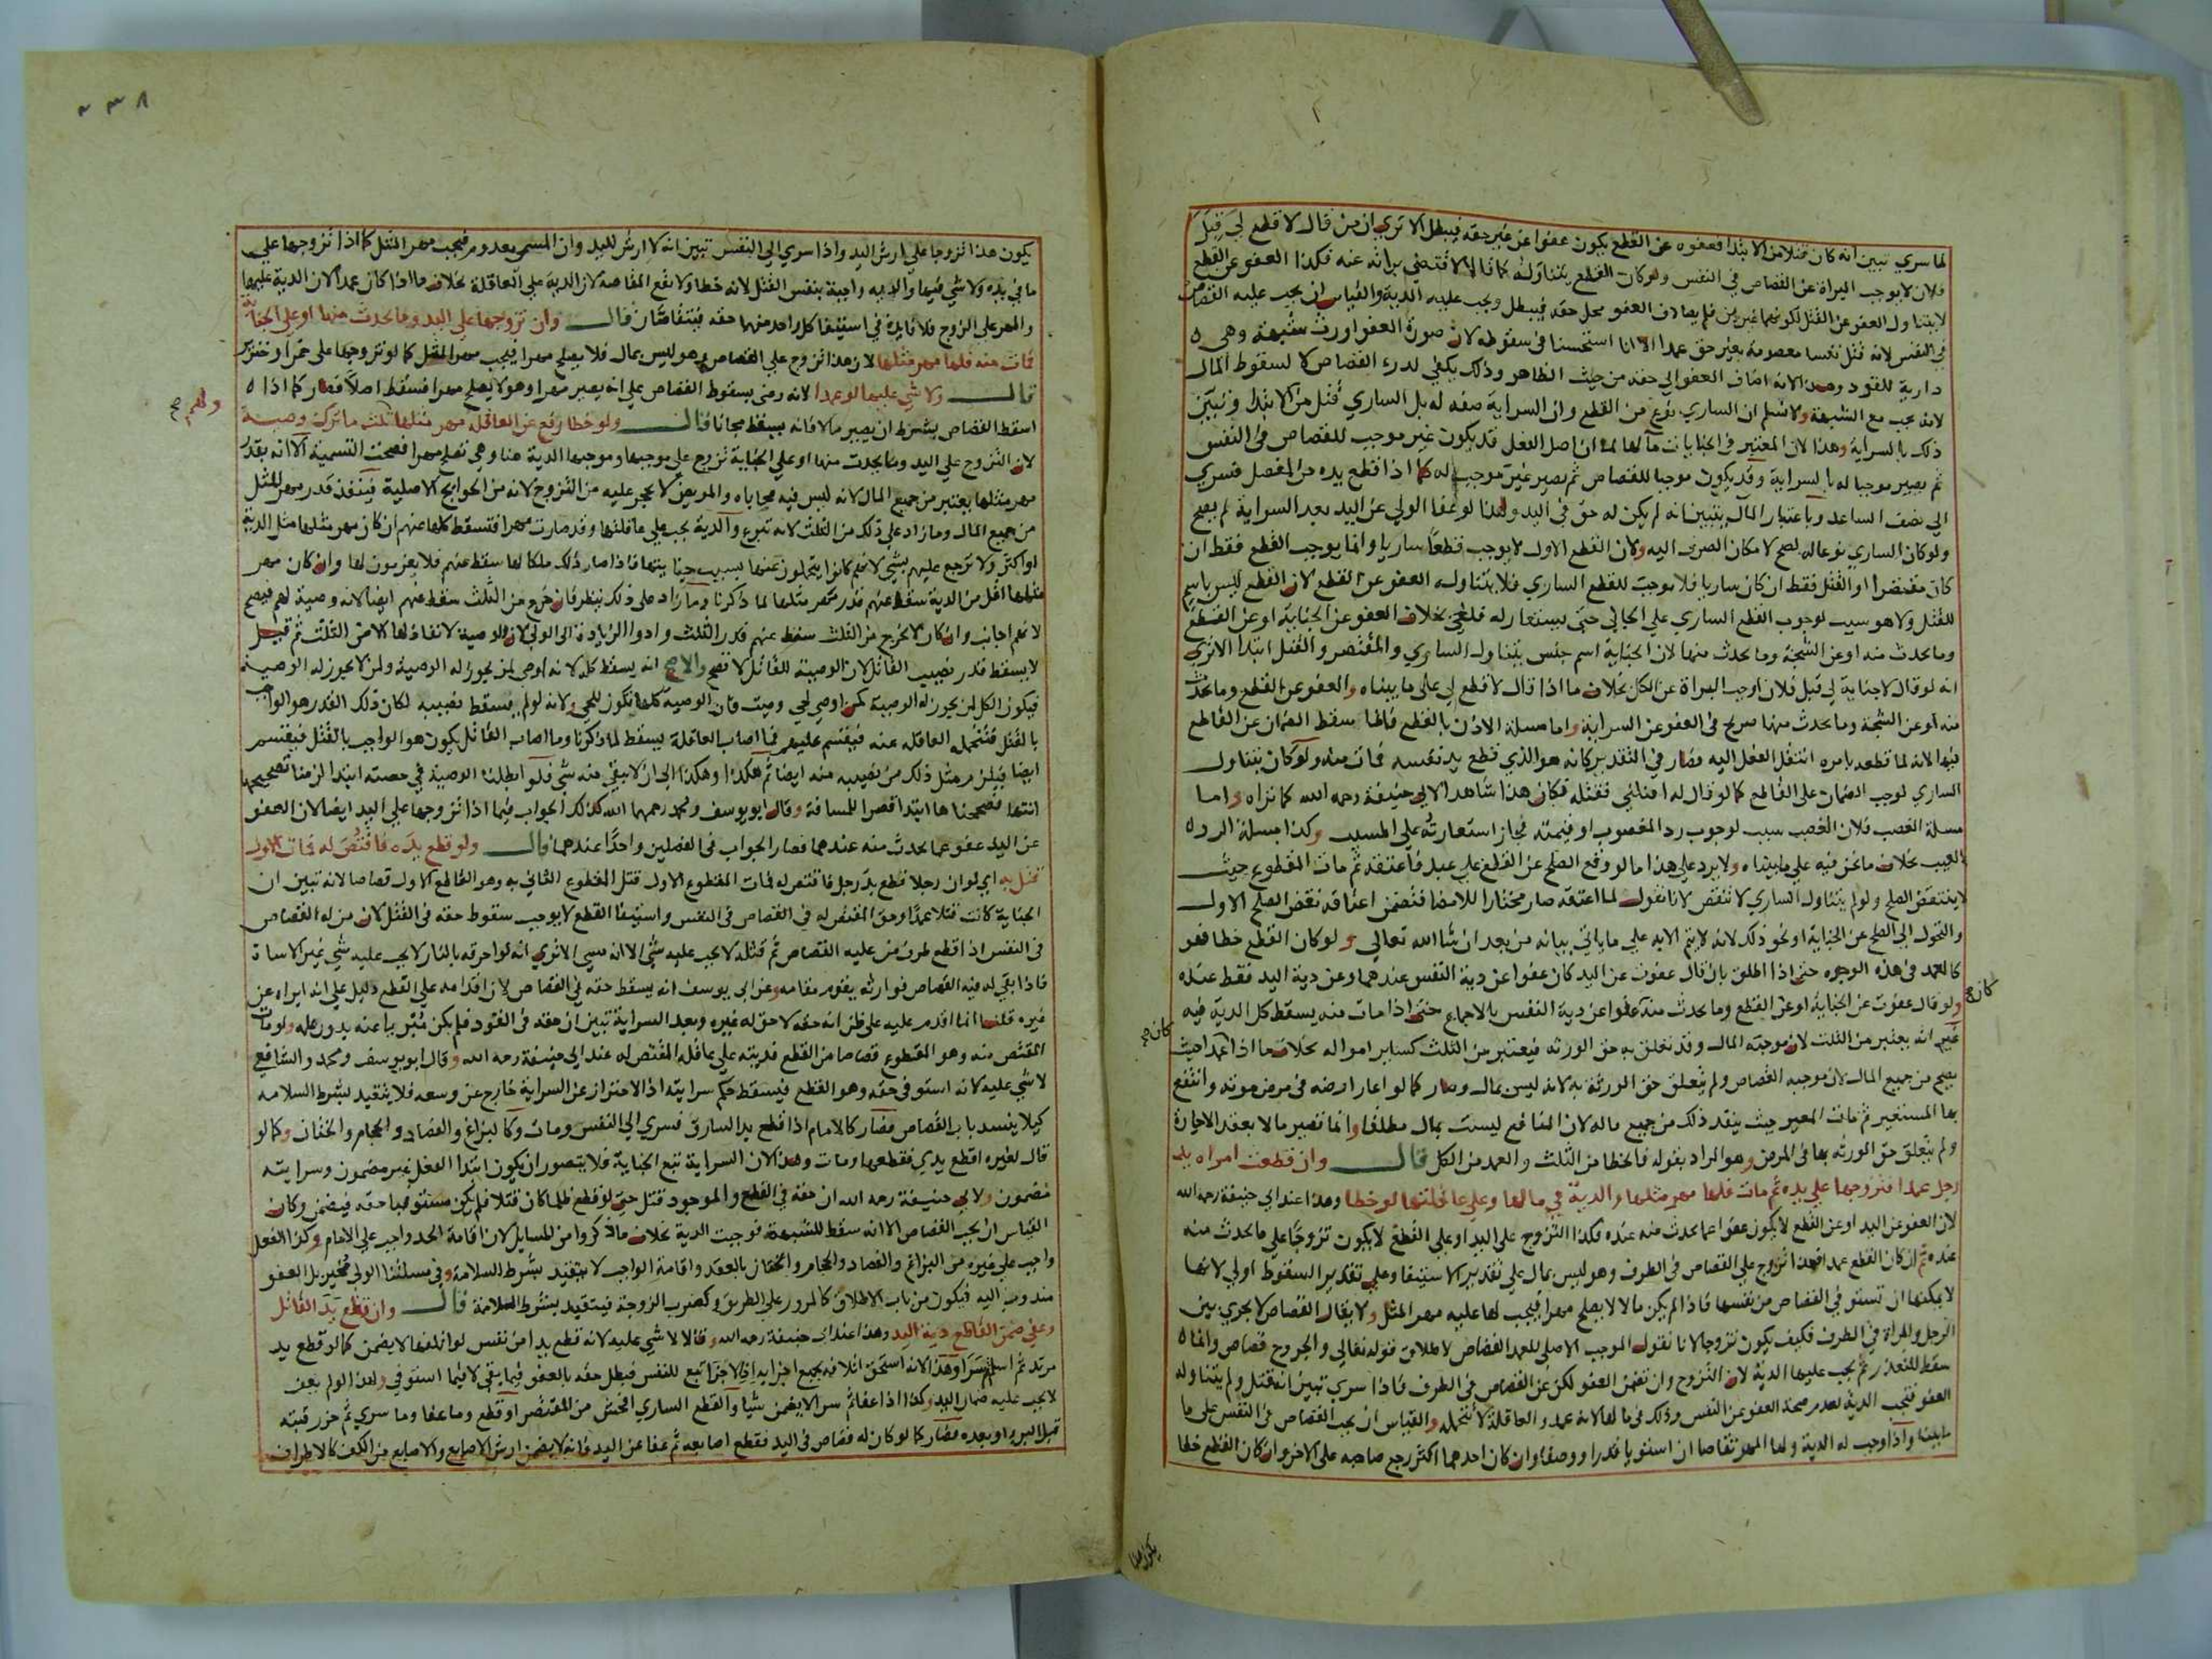 لما سري تبين انه كان قتلا من الابتدا فعفوه عن القطع يكون عفوا عن غير حقه فيبطل الا تري ان من قال لا قطع لي قبل
فلان لا يوجب البراة عن القصاص في النفس ولو كان القطع يتناوله كما قالا لاقتضي براته عنه فكذا العفو عن القطع
لا يتناول العفو عن القتل لكونهما غيرين فلم يصادف العفو محل حقه فيبطل ويجب عليه الدية والقياس ان يجب عليه القصاص
في النفس لانه قتل نفسا معصومة بغير حق عمدا الا انا استحسنا في سقوطه لان صورة العفو اورثت شبهة وهي
دارية للقود وهذا لانه اضاف العفو الي حقه من حيث الظاهر وذلك يكفي لدرء القصاص لا لسقوط المال
لانه يجب مع الشبهة ولا نسلم ان الساري نوع من القطع وان السراية صفة له بل الساري قتل من الابتدا وتبين
ذلك بالسراية وهذا لان المعتبر في الجنايات مآلها لما ان اصل الفعل قد يكون غير موجب للقصاص في النفس
ثم يصير موجبا له بالسراية وقد يكون موجبا للقصاص ثم يصير غير موجب له كما اذا قطع يده من المفصل فسري
الي نصف الساعد وباعتبار المآل يتبين انه لم يكن له حق في اليد ولهذا لو عفا الولي عن اليد بعد السراية لم يصح
ولو كان الساري نوعا له لصح لامكان الصرف اليه ولان القطع الاول لا يوجب قطعا ساريا وانما يوجب القطع فقط ان
كان مقتصرا او القتل فقط ان كان ساريا فلا يوجب للقطع الساري فلا يتناوله العفو عن القطع لان القطع ليس باسم
للقتل ولا هو سبب لوجوب القطع الساري علي الجاني حتي يستعار له فلغي بخلاف العفو عن الجناية او عن القطع
وما يحدث منه او عن الشجة وما يحدث منها لان الجناية اسم جنس يتناول الساري والمقتصر والقتل ابتدا الا تري
انه لو قال لا جناية لي قبل فلان اوجب البراة عن الكل بخلاف ما اذا قال لا قطع لي علي ما بيناه والعفو عن القطع وما يحدث
منه او عن الشجة وما يحدث منها صريح في العفو عن السراية واما مسلة الاذن بالقطع فانما سقط الضمان عن القاطع
فيها لانه لما قطعه بامره انتقل الفعل اليه فصار في التقدير كانه هو الذي قطع يد نفسه فمات منه ولو كان يتناول
الساري لوجب الضمان علي القاطع كما لو قال له اقتلني فقتله فكان هذا شاهدا لابي حنيفة رحمه الله كما تراه واما
مسلة الغصب فلان الغصب سبب لوجوب رد المغصوب او قيمته فجاز استعارته علي المسبب وكذا مسلة الرد
بالعيب بخلاف ما نحن فيه علي ما بيناه ولا يرد علي هذا ما لو وقع الصلح عن القطع علي عبد فاعتقه ثم مات المقطوع حيث
لا ينتقض الصلح ولو لم يتناول الساري لانتقض لانا نقول لما اعتقه صار مختارا للامضا فتضمن اعتاقه نقض الصلح الاول
والتحول الي الصلح عن الجناية او نحو ذلك لانه لا يتم الا به علي ما ياتي بيانه من بعد ان شا الله تعالي ولو كان القطع خطا فهو
كالعمد في هذه الوجوه حتي اذا اطلق بان قال عفوت عن اليد كان عفوا عن دية النفس عندهما وعن دية اليد فقط عنده
ولو قال عفوت عن الجناية او عن القطع وما يحدث منه عفوا عن دية النفس بالاجماع حتي اذا مات منه يسقط كل الدية فيه
كان صح
غير انه يعتبر من الثلث لان موجبه المال وقد تعلق به حق الورثه فيعتبر من الثلث كساير امواله بخلاف ما اذا عمدا حيث
كان صح
يصح من جميع المال لان موجبه القصاص ولم يتعلق حق الورثة به لانه ليس بمال وصار كما لو اعار ارضه في مرض موته وانتفع
بها المستعير ثم مات المعير حيث ينفد ذلك من جميع ماله لان المنافع ليست بمال مطلقا وانما تصير مالا بعقد الاجارة
ولم يتعلق حق الورثه بها في المرض وهو المراد بقوله فالخطا من الثلث والعمد من الكل قال وان قطعت امراه يد
رجل عمدا فتزوجها علي يده ثم مات فلها مهر مثلها والدية في مالها وعلي عاقلتها لو خطا وهذا عند ابي حنيفة رحمه الله
لان العفو عن اليد او عن القطع لا يكون عفوا عما يحدث منه عنده فكذا التزوج علي اليد او علي القطع لا يكون تزوجا علي ما يحدث منه
عنده ثم ان كان القطع عمدا فهذا تزوج علي القصاص في الطرف وهو ليس بمال علي تقدير الاستيفا وعلي تقدير السقوط اولي لانها
لا يمكنها ان تستوفي القصاص من نفسها فاذا لم يكن مالا لا يصلح مهرا فيجب لها عليه مهر المثل ولا يقال القصاص لا يجري بين
الرجل والمراة في الطرف فكيف يكون تزوجا لانا نقول الموجب الاصلي للعمد القصاص لاطلاق قوله تعالي والجروح قصاص وانما
سقط للتعذر ثم يجب عليها الدية لان التزوج وان تضمن العفو لكن عن القصاص في الطرف فاذا سري تبين انه قتل ولم يتناوله
العفو فتجب الدية لعدم صحة العفو عن النفس وذلك في مالها لانه عمد والعاقلة لا تتحمله والقياس ان يجب القصاص في النفس علي ما
بينا واذا وجب له الدية ولها المهر تقاصا ان استويا قدرا ووصفا وان كان احدهما اكثر رجع صاحبه علي الاخر وان كان القطع خطا
يكون هذا
٢٣٨
يكون هذا تزوجا علي ارش اليد واذا سري الي النفس تبين انه لا ارش لليد وان المسمي معدوم فيجب مهر المثل كما اذا تزوجها علي
ما في يده ولا شي فيها والديه واجبة بنفس القتل لانه خطا ولا تقع المقاصة لان الدية علي العاقلة بخلاف ما اذا كان عمدا لان الدية عليها
والمهر علي الزوج فلا فايدة في استيفا كل واحد منهما حقه فيتقاصان قال وان تزوجها علي اليد وما يحدث منها او علي الجناية
فمات منه فلها مهر مثلها لان هذا تزوج علي القصاص وهو ليس بمال فلا يصلح مهرا فيجب مهر المثل كما لو تزوجها علي خمر او خنزير
قال ولا شي عليها لو عمدا لانه رضي بسقوط القصاص علي انه يصير مهرا وهو لا يصلح مهرا فسقط اصلا فصار كما اذا
اسقط القصاص بشرط ان يصير مالا فانه يسقط مجانا قال ولو خطا رفع عن العاقلة مهر مثلها ثلث ما ترك وصية
ولهم صح
لان التزوج علي اليد وما يحدث منها او علي الجناية تزوج علي موجبها وموجبها الدية هنا وهي تصلح مهرا فصحت التسمية الا انه بقدر
مهر مثلها يعتبر من جميع المال لانه ليس فيه محاباه والمريض لا يحجر عليه من التزوج لانه من الحوايج الاصلية فينفذ قدر مهر المثل
من جميع المال وما زاد علي ذلك من الثلث لانه تبرع والدية تجب علي عاقلتها وقد صارت مهرا فتسقط كلها عنهم ان كان مهر مثلها مثل الدية
او اكثر ولا ترجع عليهم بشي لانهم كانوا يتحملون عنها بسبب جنايتها فاذا صار ذلك ملكا لها سقط عنهم فلا يغرمون لها وان كان مهر
مثلها اقل من الدية سقط عنهم قدر مهر مثلها لما ذكرنا وما زاد علي ذلك ينظر فان خرج من الثلث سقط عنهم ايضا لانه وصية لهم فيصح
لانهم اجانب وان كان لا يخرج من الثلث سقط عنهم قدر الثلث وادوا الزيادة الي الولي لان الوصية لا نفاذ لها الا من الثلث ثم قيل
لا يسقط قدر نصيب القاتل لان الوصية للقاتل لا تصح والاصح انه يسقط كله لانه اوصي لمن يجوز له الوصية ولمن لا يجوز له الوصية
فيكون الكل لمن يجوز له الوصية كمن اوصي لحي وميت فان الوصية كلها تكون للحي ولانه لو لم يسقط نصيبه لكان ذلك القدر هو الواجب
بالقتل فتتحمله العاقله عنه فيقسم عليهم فما اصاب العاقلة يسقط لما ذكرنا وما اصاب القاتل يكون هو الواجب بالقتل فيقسم
ايضا فيلزم مثل ذلك من نصيبه منه ايضا ثم هكذا وهكذا الي ان لا يبقي منه شي فلو ابطلنا الوصية في حصته ابتدا لزمنا تصحيحها
انتها فصححناها ابتدا قصرا للمسافة وقال ابو يوسف ومحمد رحمهما الله كذلك الجواب فيما اذا تزوجها علي اليد ايضا لان العفو
عن اليد عفو عما يحدث منه عندهما فصار الجواب في الفصلين واحدا عندهما قال ولو قطع يده فاقتص له فمات الاول
قتل به اي لو ان رجلا قطع يد رجل فاقتص له فمات المقطوع الاول قتل المقطوع الثاني به وهو القاطع الاول قصاصا لانه تبين ان
الجناية كانت قتلا عمدا وحق المقتص له في القصاص في النفس واستيفا القطع لا يوجب سقوط حقه في القتل لان من له القصاص
في النفس اذا قطع طرف من عليه القصاص ثم قتله لا يجب عليه شي الا انه مسي الا تري انه لو احرقه بالنار لا يجب عليه شي غير الاساة
فاذا بقي له فيه القصاص فوارثه يقوم مقامه وعن ابي يوسف انه يسقط حقه في القصاص لان اقدامه علي القطع دليل علي انه ابراه عن
غيره قلنا انما اقدم عليه علي ظن انه حقه لا حق له غيره وبعد السراية تبين ان حقه في القود فلم يكن مبريا عنه بدون علمه ولو مات
المقتص منه وهو المقطوع قصاصا من القطع فديته علي عاقلة المقتص له عند ابي حنيفة رحمه الله وقال ابو يوسف ومحمد والشافعي
لا شي عليه لانه استوفي حقه وهو القطع فيسقط حكم سرايته اذ الاحتراز عن السراية خارج عن وسعه فلا يتقيد بشرط السلامه
كيلا ينسد باب القصاص فصار كالامام اذا قطع يد السارق فسري الي النفس ومات وكالبزاغ والفصاد والحجام والختان وكما لو
قال لغيره اقطع يدي فقطعها ومات وهذا لان السراية تبع الجناية فلا يتصور ان يكون ابتدا الفعل غير مضمون وسرايته
مضمون ولابي حنيفة رحمه الله ان حقه في القطع والموجود قتل حتي لو قطع ظلما كان قتلا فلم يكن مستوفيا حقه فيضمن وكان
القياس ان يجب القصاص الا انه سقط للشبهة فوجبت الدية بخلاف ما ذكروا من المسايل لان اقامة الحد واجب علي الامام وكذا الفعل
واجب علي غيره من البزاغ والفصاد والحجام والختان بالعقد واقامة الواجب لا يتقيد بشرط السلامة وفي مسلتنا الولي مخير بل العفو
مندوب اليه فيكون من باب الاطلاق كالمرور علي الطريق وكضرب الزوجة فيتقيد بشرط السلامة قال وان قطع يد القاتل
وعفي ضمن القاطع دية اليد وهذا عند ابي حنيفة رحمه الله وقالا لا شي عليه لانه قطع يدا من نفس لو اتلفها لا يضمن كما لو قطع يد
مرتد ثم اسلم ثم سرا وهذا لانه استحق اتلافه بجميع اجزايه اذ الاجزا تبع للنفس فبطل حقه بالعفو فيما بقي لا فيما استوفي ولهذا لو لم يعف
لا يجب عليه ضمان اليد وكذا اذا عفا ثم سرا لا يضمن شيا والقطع الساري افحش من المقتصر او قطع وما عفا وما سري ثم حز رقبته
قبل البرء او بعده فصار كما لو كان له قصاص في اليد فقطع اصابعه ثم عفا عن اليد فانه لا يضمن ارش الاصابع والاصابع من الكف كالاطراف